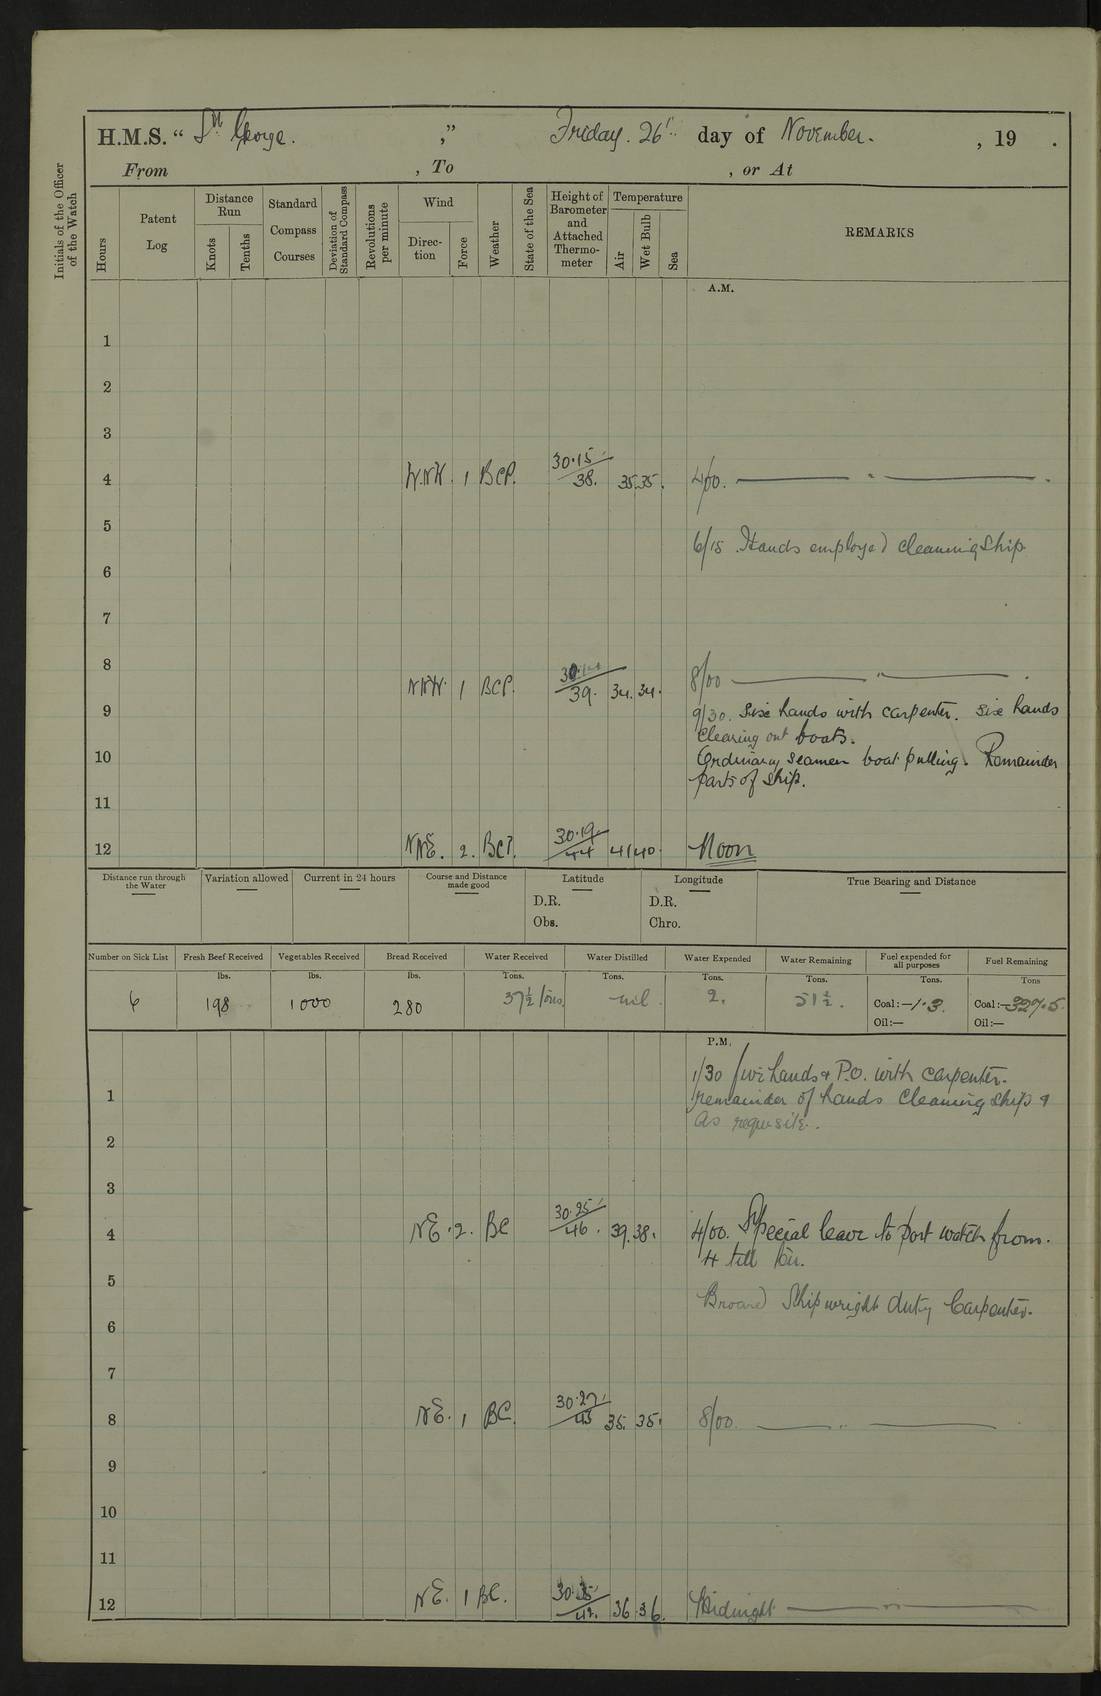 H.M.S. “ St George. ,” Friday. 26th day of November. , 19 .
From , To , or At
Initials of the Officer of the Watch
Hours
Patent Log
Distance Run
Knots
Tenths
Standard Compass Courses
Deviation of Standard Compass
Revolutions per minute
Wind
Direc-tion
Force
Weather
State of the Sea
Height of Barometer and Attached Thermo-meter
Temperature
Air
Wet Bulb
Sea
REMARKS
A.M.
1
2
3
4 W.NW. 1 BCP. 30.15 / 38. 35. 35. 4/00. — " — .
5
6/15 Hands employed cleaning Ship
6
7
8 NNW. 1 BCP. 39. 34. 34. 8/00 — " — .
9
9/30. Six hands with carpenter. Six hands
clearing out boats.
10 Ordinary Seamen boat pulling. Remainder
parts of Ship.
11
12 NNE. 2. BCP. 30.19 / 44 41 40. Noon
Distance run through the Water
Variation allowed
Current in 24 hours
Course and Distance made good
Latitude
D.R.
Obs.
Longitude
D.R.
Chro.
True Bearing and Distance
Number on Sick List
Fresh Beef Received
Vegetables Received
Bread Received
Water Received
Water Distilled
Water Expended
Water Remaining
Fuel expended for all purposes
Fuel Remaining
lbs. lbs. lbs. Tons. Tons. Tons. Tons. Tons. Tons
6 198 1000 280 37½ tons. nil. 2. 51½. Coal:—1.3. Coal:—327.5
Oil:— Oil:—
P.M.
1/30 five hands & P.O. with carpenter.
1 remainder of hands cleaning ship &
as requisite.
2
3
4 NE. 2. BC 30.25 / 46. 39. 38. 4/00. Special leave to port watch from.
4 till
5
Shipwright duty Carpenter.
6
7
8 NE. 1 BC. 30.27 / 43 35. 35. 8/00 — " —
9
10
11
12 NE. 1 BC. 42. 36 36. Midnight — " —